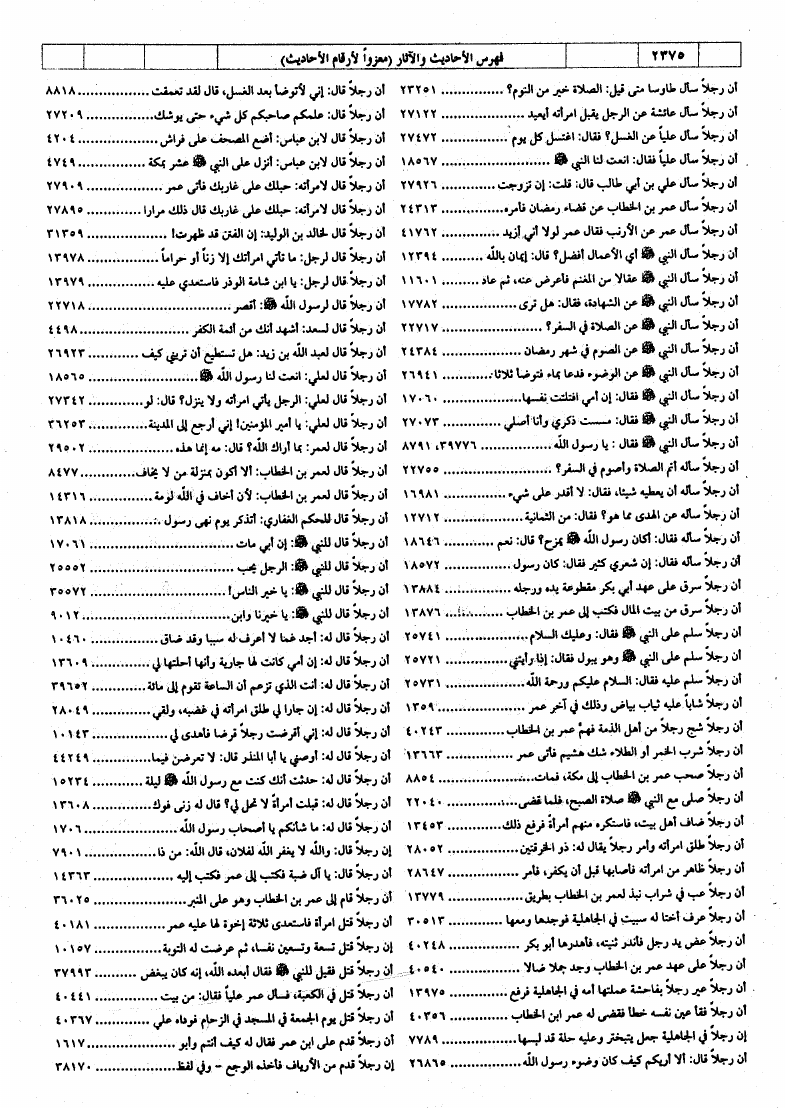 ٢٣٧٥
فهرس الأحاديث والآثار (معزواً لأرقام الأحاديث)
أن رجلاً سأل طاوسا متى قيل: الصلاة خير من النوم؟ ............... ٢٣٢٥١
أن رجلاً سأل عائشة عن الرجل يقبل امرأته أيعيد ............... ٢٧١٢٢
أن رجلاً سأل علياً عن الغسل؟ فقال: اغتسل كل يوم ............... ٢٧٤٧٢
أن رجلاً سأل علياً فقال: انعت لنا النبي ﷺ ............... ١٨٥٦٧
أن رجلاً سأل علي بن أبي طالب قال: قلت: إن تزوجت ............... ٢٧٩٢٦
أن رجلاً سأل عمر بن الخطاب عن قضاء رمضان فأمره ............... ٢٤٣١٣
أن رجلاً سأل عمر عن الأرنب فقال عمر لولا أني أزيد ............... ٤١٧٦٢
أن رجلاً سأل النبي ﷺ أي الأعمال أفضل؟ قال: إيمان بالله ............... ١٢٣٩٤
أن رجلاً سأل النبي ﷺ عقالا من المغنم فأعرض عنه، ثم عاد ............... ١١٦٠١
أن رجلاً سأل النبي ﷺ عن الشهادة، فقال: هل ترى ............... ١٧٧٨٢
أن رجلاً سأل النبي ﷺ عن الصلاة في السفر؟ ............... ٢٢٧١٧
أن رجلاً سأل النبي ﷺ عن الصوم في شهر رمضان ............... ٢٤٣٨٤
أن رجلاً سأل النبي ﷺ عن الوضوء فدعا بماء فتوضأ ثلاثا ............... ٢٦٩٤١
أن رجلاً سأل النبي ﷺ فقال: إن أمي افتلتت نفسها ............... ١٧٠٦٠
أن رجلاً سأل النبي ﷺ فقال: مسست ذكري وأنا أصلي ............... ٢٧٠٧٣
أن رجلاً سأل النبي ﷺ فقال: يا رسول الله ............... ٣٩٧٧٦، ٨٧٩١
أن رجلاً سأله أتم الصلاة وأصوم في السفر؟ ............... ٢٢٧٥٥
أن رجلاً سأله أن يعطيه شيئا، فقال: لا أقدر على شيء ............... ١٦٩٨١
أن رجلاً سأله عن الهدى مما هو؟ فقال: من الثمانية ............... ١٢٧١٢
أن رجلاً سأله فقال: أكان رسول الله ﷺ يمزح؟ قال: نعم ............... ١٨٦٤٦
أن رجلاً سأله فقال: إن شعري كثير فقال: كان رسول ............... ١٨٥٧٢
أن رجلاً سرق على عهد أبي بكر مقطوعة يده ورجله ............... ١٣٨٨٤
أن رجلاً سرق من بيت المال فكتب إلى عمر بن الخطاب ............... ١٣٨٧٦
أن رجلاً سلم على النبي ﷺ فقال: وعليك السلام ............... ٢٥٧٤١
أن رجلاً سلم على النبي ﷺ وهو يبول فقال: إذا رأيتني ............... ٢٥٧٢١
أن رجلاً سلم عليه فقال: السلام عليكم ورحمة الله ............... ٢٥٧٣١
أن رجلاً شاباً عليه ثياب بياض وذلك في آخر عمر ............... ١٣٥٩
أن رجلاً شج رجلاً من أهل الذمة فهمَّ عمر بن الخطاب ............... ٤٠٢٤٣
أن رجلاً شرب الخمر أو الطلاء شك هشيم فأتى عمر ............... ١٣٦٦٣
أن رجلاً صحب عمر بن الخطاب إلى مكة، فمات ............... ٨٨٥٤
أن رجلاً صلى مع النبي ﷺ صلاة الصبح، فلما قضى ............... ٢٢٠٤٠
أن رجلاً ضاف أهل بيت، فاستكره منهم أمرأة فرفع ذلك ............... ١٣٤٥٣
أن رجلاً طلق امرأته وأمر رجلاً يقال له: ذو الخرقتين ............... ٢٨٠٥٢
أن رجلاً ظاهر من امرأته فأصابها قبل أن يكفر، فأمر ............... ٢٨٦٤٧
أن رجلاً عب في شراب نبذ لعمر بن الخطاب بطريق ............... ١٣٧٧٩
أن رجلاً عرف أختا له سبيت في الجاهلية فوجدها ومعها ............... ٣٠٥١٣
أن رجلاً عض يد رجل فأندر ثنيته، فأهدرها أبو بكر ............... ٤٠٢٤٨
أن رجلاً على عهد عمر بن الخطاب وجد جملا ضالا ............... ٤٠٥٤٠
أن رجلاً عير رجلاً بفاحشة عملتها أمه في الجاهلية فرفع ............... ١٣٩٧٥
أن رجلاً فقأ عين نفسه خطأ فقضى له عمر ابن الخطاب ............... ٤٠٣٥٦
إن رجلاً في الجاهلية جعل يتبختر وعليه حلة قد لبسها ............... ٧٧٨٩
أن رجلاً قال: ألا أريكم كيف كان وضوء رسول الله ............... ٢٦٨٦٥
أن رجلاً قال: إني لأتوضأ بعد الغسل، قال لقد تعمقت ............... ٨٨١٨
أن رجلاً قال: علمكم صاحبكم كل شيء حتى يوشك ............... ٢٧٢٠٩
أن رجلاً قال لابن عباس: أضع المصحف على فراش ............... ٤٢٠٤
أن رجلاً قال لابن عباس: أنزل على النبي ﷺ عشر بمكة ............... ٤٧٤٩
أن رجلاً قال لامرأته: حبلك على غاربك فأتى عمر ............... ٢٧٩٠٩
أن رجلاً قال لامرأته: حبلك على غاربك قال ذلك مرارا ............... ٢٧٨٩٥
أن رجلاً قال لخالد بن الوليد: إن الفتن قد ظهرت! ............... ٣١٣٥٩
أن رجلاً قال لرجل: ما تأتي امرأتك إلا زناً أو حراماً ............... ١٣٩٧٨
أن رجلاً قال لرجل: يا ابن شامة الوذر فاستعدي عليه ............... ١٣٩٧٩
أن رجلاً قال لرسول الله ﷺ: أقصر ............... ٢٢٧١٨
أن رجلاً قال لسعد: أشهد أنك من أئمة الكفر ............... ٤٤٩٨
أن رجلاً قال لعبد الله بن زيد: هل تستطيع أن تريني كيف ............... ٢٦٩٢٣
أن رجلاً قال لعلي: انعت لنا رسول الله ﷺ ............... ١٨٥٦٥
أن رجلاً قال لعلي: الرجل يأتي امرأته ولا ينزل؟ قال: لو ............... ٢٧٣٤٢
أن رجلاً قال لعلي: يا أمير المؤمنين! إني أرجع إلى المدينة ............... ٣٦٢٥٣
أن رجلاً قال لعمر: بما أراك الله؟ قال: مه إنما هذه ............... ٢٩٥٠٢
أن رجلاً قال لعمر بن الخطاب: ألا أكون بمنزلة من لا يخاف ............... ٨٤٧٧
أن رجلاً قال لعمر بن الخطاب: لأن أخاف في الله لومة ............... ١٤٣١٦
أن رجلاً قال للحكم الغفاري: أتذكر يوم نهى رسول ............... ١٣٨١٨
أن رجلاً قال للنبي ﷺ: إن أبي مات ............... ١٧٠٦١
أن رجلاً قال للنبي ﷺ: الرجل يحب ............... ٢٥٥٥٢
أن رجلاً قال للنبي ﷺ: يا خير الناس! ............... ٣٥٥٧٢
أن رجلاً قال للنبي ﷺ: يا خيرنا وابن ............... ٩٠١٢
أن رجلاً قال له: أجد غما لا أعرف له سببا وقد ضاق ............... ١٠٤٦٠
أن رجلاً قال له: إن أمي كانت لها جارية وأنها أحلتها لي ............... ١٣٦٠٩
أن رجلاً قال له: أنت الذي تزعم أن الساعة تقوم إلى مائة ............... ٣٩٦٥٢
أن رجلاً قال له: إن جارا لي طلق امرأته في غضبه، ولقي ............... ٢٨٠٤٩
أن رجلاً قال له: إني أقرضت رجلاً قرضا فأهدى لي ............... ١٠١٤٣
أن رجلاً قال له: أوصني يا أبا المنذر قال: لا تعرضن فيما ............... ٤٤٢٤٩
أن رجلاً قال له: حدثت أنك كنت مع رسول الله ﷺ ليلة ............... ١٥٢٣٤
أن رجلاً قال له: قبلت أمرأة لا تحل لي؟ قال له زنى فوك ............... ١٣٦٠٨
أن رجلاً قال له: ما شأنكم يا أصحاب رسول الله ............... ١٧٠٦
إن رجلاً قال: والله لا يغفر الله لفلان، قال الله: من ذا ............... ٧٩٠١
أن رجلاً قال: يا آل ضبة فكتب إلى عمر فكتب إليه ............... ١٤٣٦٣
أن رجلاً قام إلى عمر بن الخطاب وهو على المنبر ............... ٣٦٠٢٥
أن رجلاً قتل امرأة فاستعدى ثلاثة إخوة لها عليه عمر ............... ٤٠١٨١
إن رجلاً قتل تسعة وتسعين نفسا، ثم عرضت له التوبة ............... ١٠١٥٧
أن رجلاً قتل فقيل للنبي ﷺ فقال أبعده الله، إنه كان يبغض ............... ٣٧٩٩٣
أن رجلاً قتل في الكعبة، فسأل عمر علياً فقال: من بيت ............... ٤٠٤٤١
أن رجلاً قتل يوم الجمعة في المسجد في الزحام فوداه علي ............... ٤٠٣٦٧
أن رجلاً قدم على ابن عمر فقال له كيف أنتم وأبو ............... ١٦١٧
إن رجلاً قدم من الأرياف فأخذه الوجع - وفي لفظ ............... ٣٨١٧٠